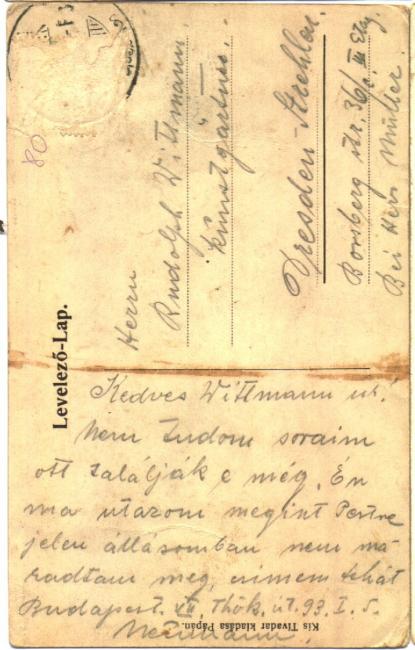 Levelező-Lap.
Herrn
Rudolph Wittmann.
Kunstgärtner.
Dresden-Strehlen.
Borsberg str. 36/c. III Etg.
Bei Herr Müller
80
Kedves Wittmann ur!
Nem tudom soraim
ott találják e még. Én
ma utazom megint Pestre
jelen állásomban nem ma
radtam meg, cimem tehát
Budapest. VII. Thök. út. 93. I. 5.
Neumann.
Kis Tivadar kiadása Pápán.